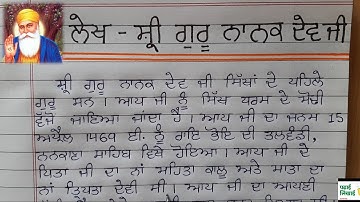 ਲੇਖ - ਸ਼੍ਰੀ ਗੁਰੂ ਨਾਨਕ ਦੇਵ ਜੀ
ਸ਼੍ਰੀ ਗੁਰੂ ਨਾਨਕ ਦੇਵ ਜੀ ਸਿੱਖਾਂ ਦੇ ਪਹਿਲੇ
ਗੁਰੂ ਸਨ। ਆਪ ਜੀ ਨੂੰ ਸਿੱਖ ਧਰਮ ਦੇ ਮੋਢੀ
ਵਜੋਂ ਜਾਣਿਆ ਜਾਂਦਾ ਹੈ। ਆਪ ਜੀ ਦਾ ਜਨਮ 15
ਅਪ੍ਰੈਲ 1469 ਈ. ਨੂੰ ਰਾਇ ਭੋਇ ਦੀ ਤਲਵੰਡੀ,
ਨਨਕਾਣਾ ਸਾਹਿਬ ਵਿਖੇ ਹੋਇਆ। ਆਪ ਜੀ ਦੇ
ਪਿਤਾ ਜੀ ਦਾ ਨਾਂ ਮਹਿਤਾ ਕਾਲੂ ਅਤੇ ਮਾਤਾ ਦਾ
ਨਾਂ ਤ੍ਰਿਪਤਾ ਦੇਵੀ ਸੀ। ਆਪ ਜੀ ਦਾ ਆਪਣੀ